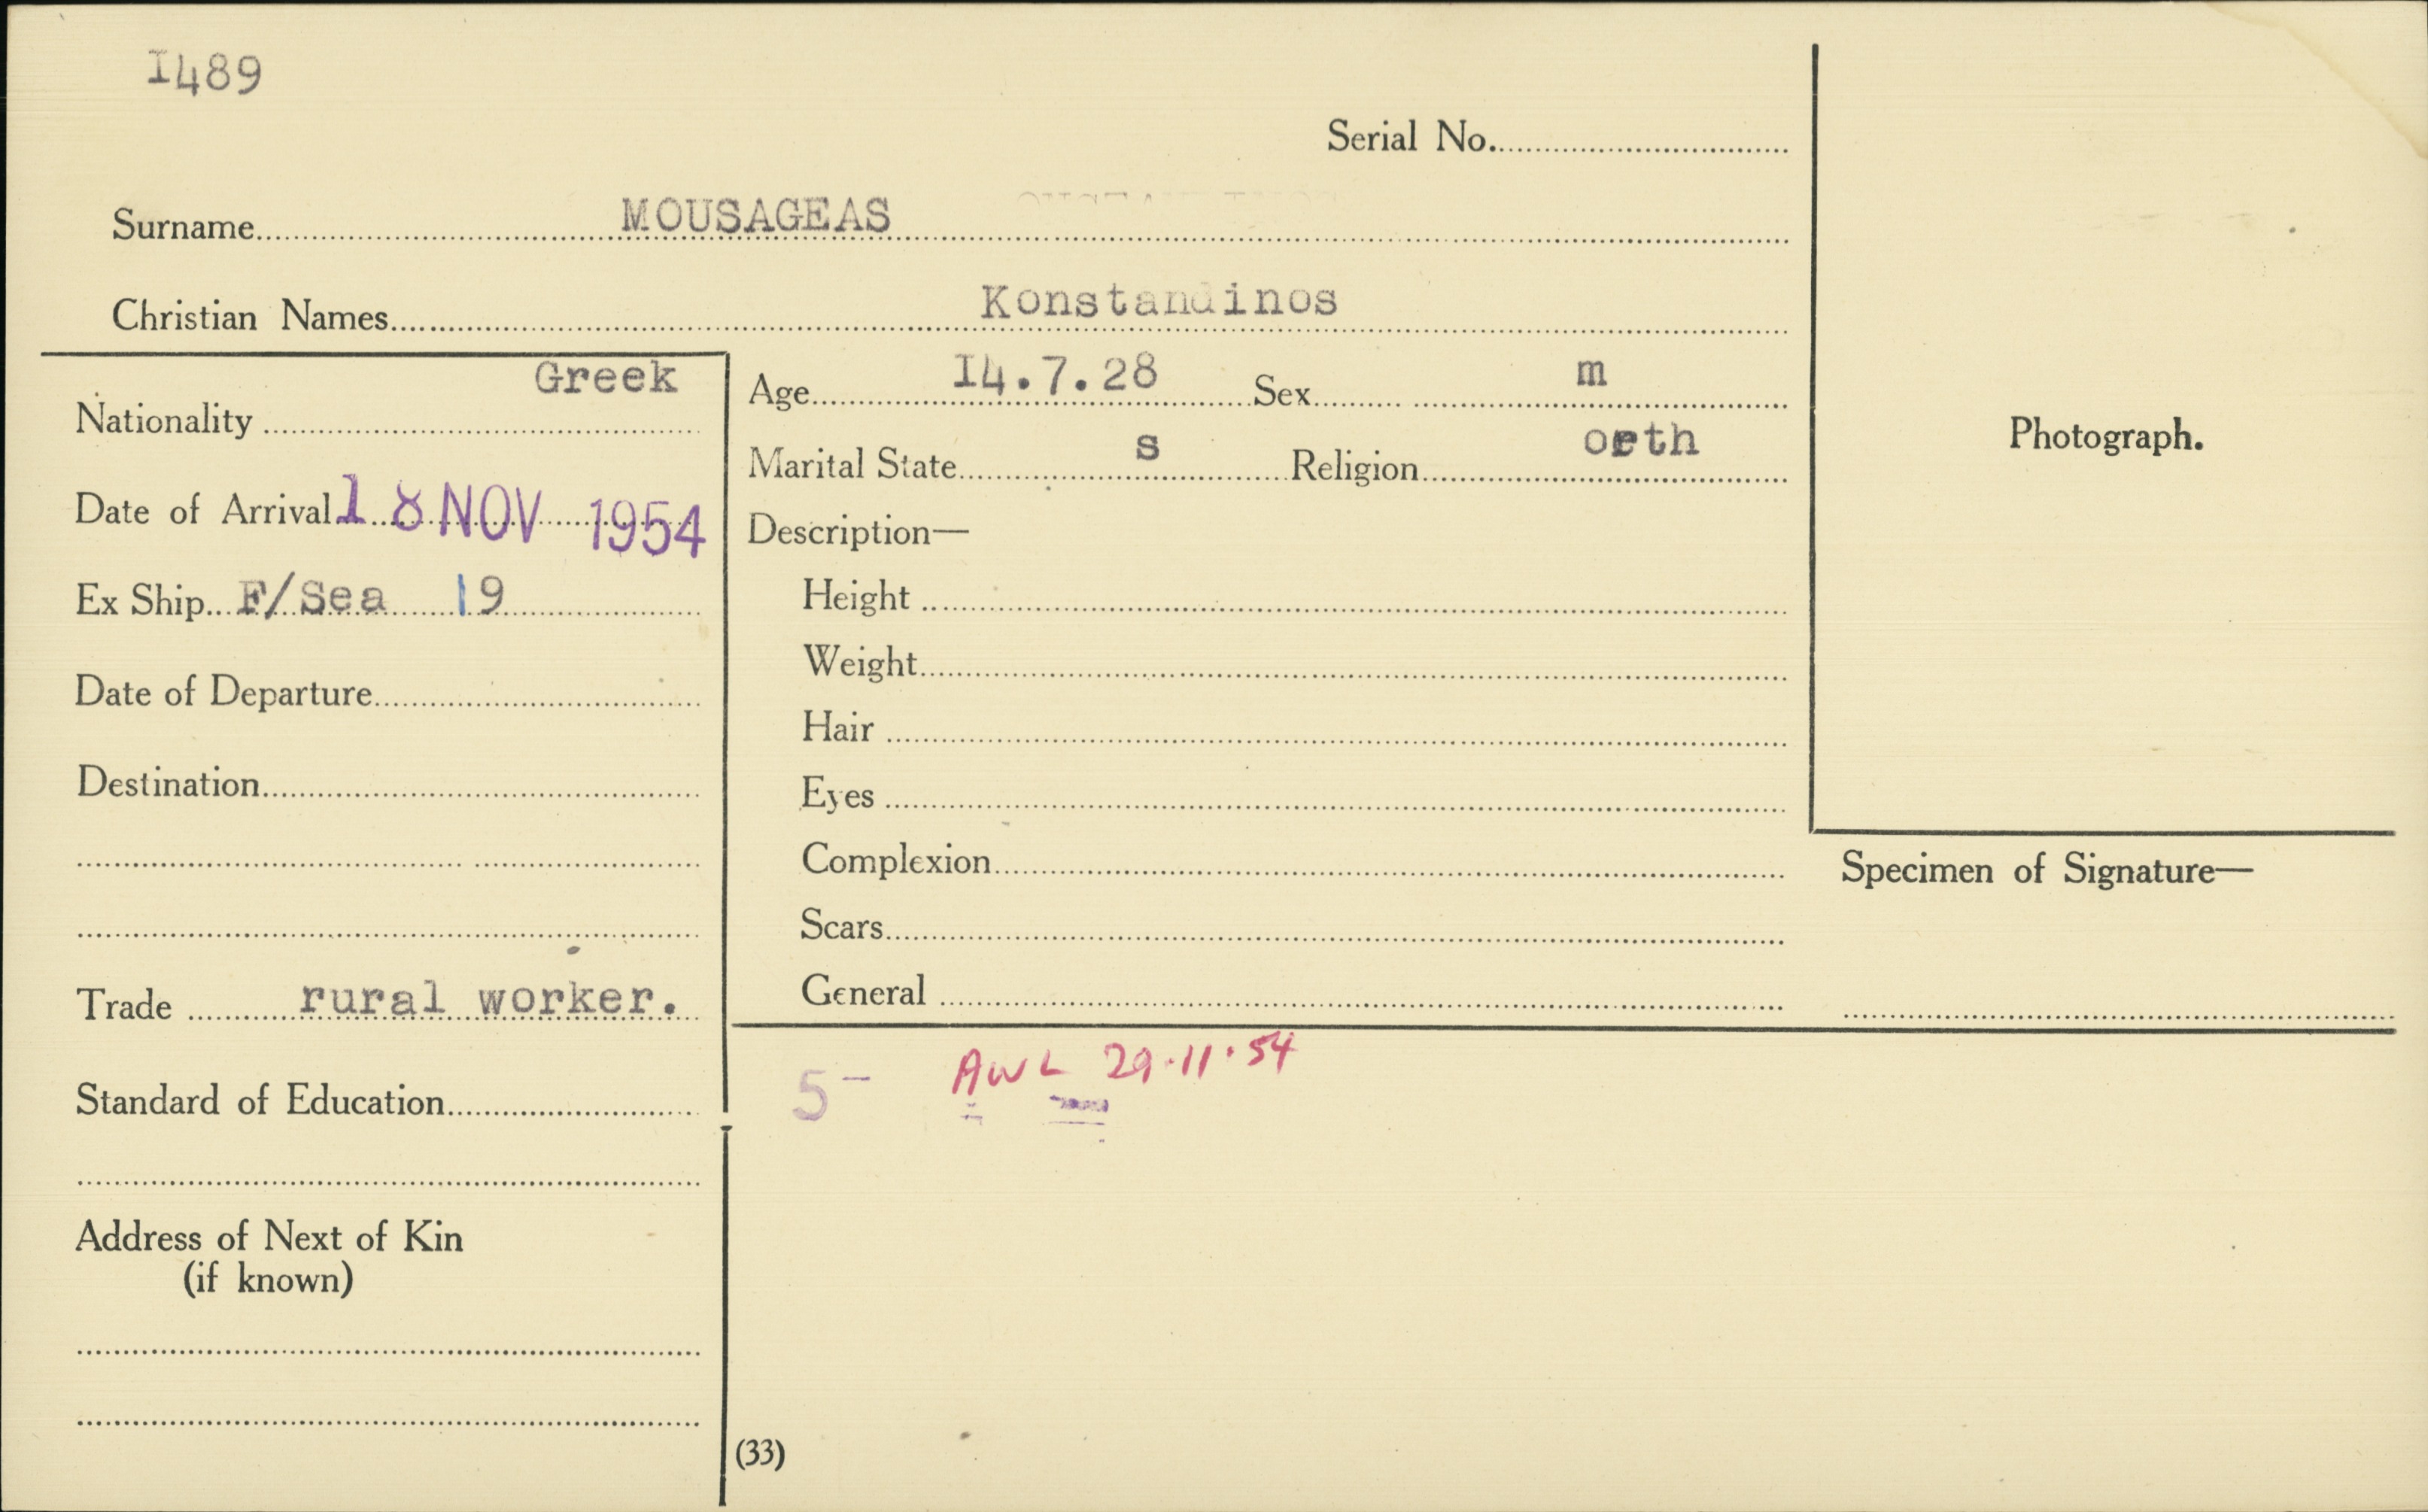 I489
Serial No.
Surname MOUSAGEAS
Christian Names Konstandinos
Nationality Greek
Date of Arrival 18 NOV 1954
Ex Ship F/Sea 19
Date of Departure
Destination
Trade rural worker.
Standard of Education
Address of Next of Kin
(if known)
Age I4.7.28 Sex m
Marital State s Religion orth
Description—
Height
Weight
Hair
Eyes
Complexion
Scars
General
Photograph.
Specimen of Signature—
5 - AWL 29.11.54
(33)